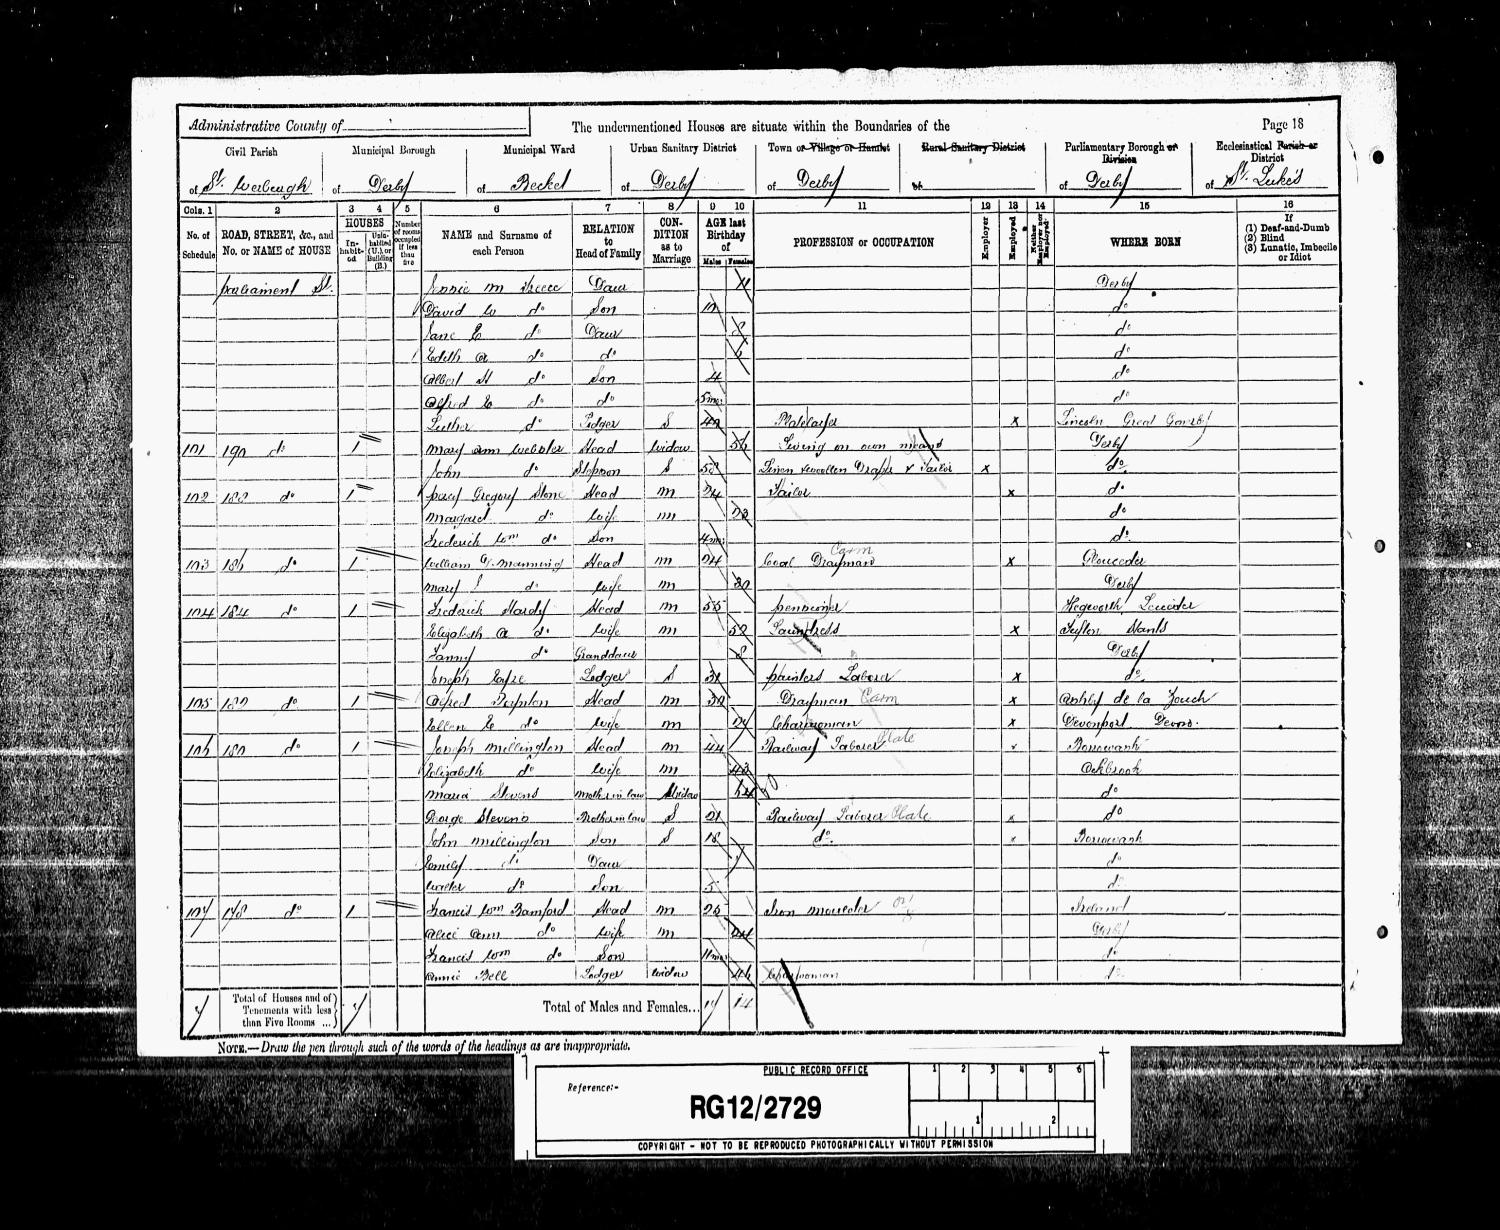 Administrative County of
The undermentioned Houses are situate within the Boundaries of the
Page 18
Civil Parish of St. Werburgh
Municipal Borough of Derby
Municipal Ward of Becket
Urban Sanitary District of Derby
Town or Village or Hamlet of Derby
Rural Sanitary District of
Parliamentary Borough or Division of Derby
Ecclesiastical Parish or District of St. Luke's
Cols. 1 2 3 4 5 6 7 8 9 10 11 12 13 14 15 16
No. of Schedule
ROAD, STREET, &c., and No. or NAME of HOUSE
HOUSES
In-habit-ed
Unin-habited (U.), or Building (B.)
Number of rooms occupied if less than five
NAME and Surname of each Person
RELATION to Head of Family
CON-DITION as to Marriage
AGE last Birthday of
Males Females
PROFESSION or OCCUPATION
Employer
Employed
Neither Employer nor Employed
WHERE BORN
If
(1) Deaf-and-Dumb
(2) Blind
(3) Lunatic, Imbecile or Idiot
Parliament St. Jennie M Daur 11 Derby
David W do Son 10 do
Jane E do Daur 8 do
Edith A do do 6 do
Albert H do Son 4 do
Alfred E do do 5 mo. do
Luther do Lodger S 40 Platelayer x Lincoln Great
101 190 do 1 Mary Ann Webster Head Widow 56 Living on own means Derby
John do Stepson S 50 Linen & woollen Draper & Tailor x do
102 188 do 1 Percy Gregory Stone Head M 24 Tailor x do
Margaret do Wife M 23 do
Frederick Wm do Son 4 mo. do
103 186 do 1 William G. Manning Head M 24 Coal Drayman Carm x Gloucester
Mary do Wife M 30 Derby
104 184 do 1 Frederick Hardy Head M 55 Pensioner Leicester
Elizabeth A do Wife M 52 Laundress x Hants
Fanny do Granddaur 8 Derby
Joseph Lodger S 31 Painters Laborer x do
105 182 do 1 Alfred Head M 30 Drayman Carm x Ashby de la Zouch
Ellen E do Wife M 27 Charwoman x Devonport Devons.
106 180 do 1 Joseph Millington Head M 44 Railway Laborer Plate x Borrowash
Elizabeth do Wife M 43 Ockbrook
Maria Stevens Mother in law Widow 64 do
George Stevens Brother in law S 21 Railway Laborer Plate x do
John Millington Son S 18 do. x Borrowash
Emily do Daur 7 do
Walter do Son 5 do
107 178 do 1 Francis Wm Bamford Head M 25 Iron moulder Ireland
Alice Ann do Wife M 24 Derby
Francis Wm do Son 11 mo do
Annie Bell Lodger Widow 46 Charwoman do
7 Total of Houses and of Tenements with less than Five Rooms ... 7 Total of Males and Females... 17 14
NOTE.—Draw the pen through such of the words of the headings as are inappropriate.
PUBLIC RECORD OFFICE
1 2 3 4 5 6
Reference:-
RG12/2729
1 2
COPYRIGHT - NOT TO BE REPRODUCED PHOTOGRAPHICALLY WITHOUT PERMISSION